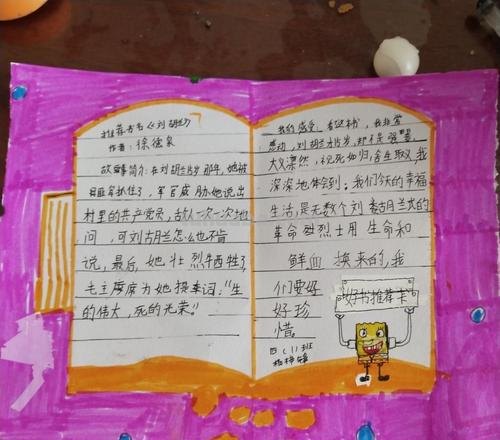 推荐书名《刘胡兰》
作者：徐德
故事简介：在刘胡兰岁那年，她被
抓住了，军官威胁她说出
村里的共产党员，敌人一次一次地
问，可刘古月兰怎么也不肯
说，最后，她壮烈牺牲了
毛主席为她提挽词："生
的伟大，死的光荣。"
我的感受：看这本书，我非常
感动，刘胡兰岁，却不是
大义凛然，视死如归，舍生取义，我
深深地体会到：我们今天的幸福
生活，是无数个刘古月兰式的
革命烈士用生命和
鲜血换来的，我
们要好
好珍
惜。
好书推荐卡
四（1）班